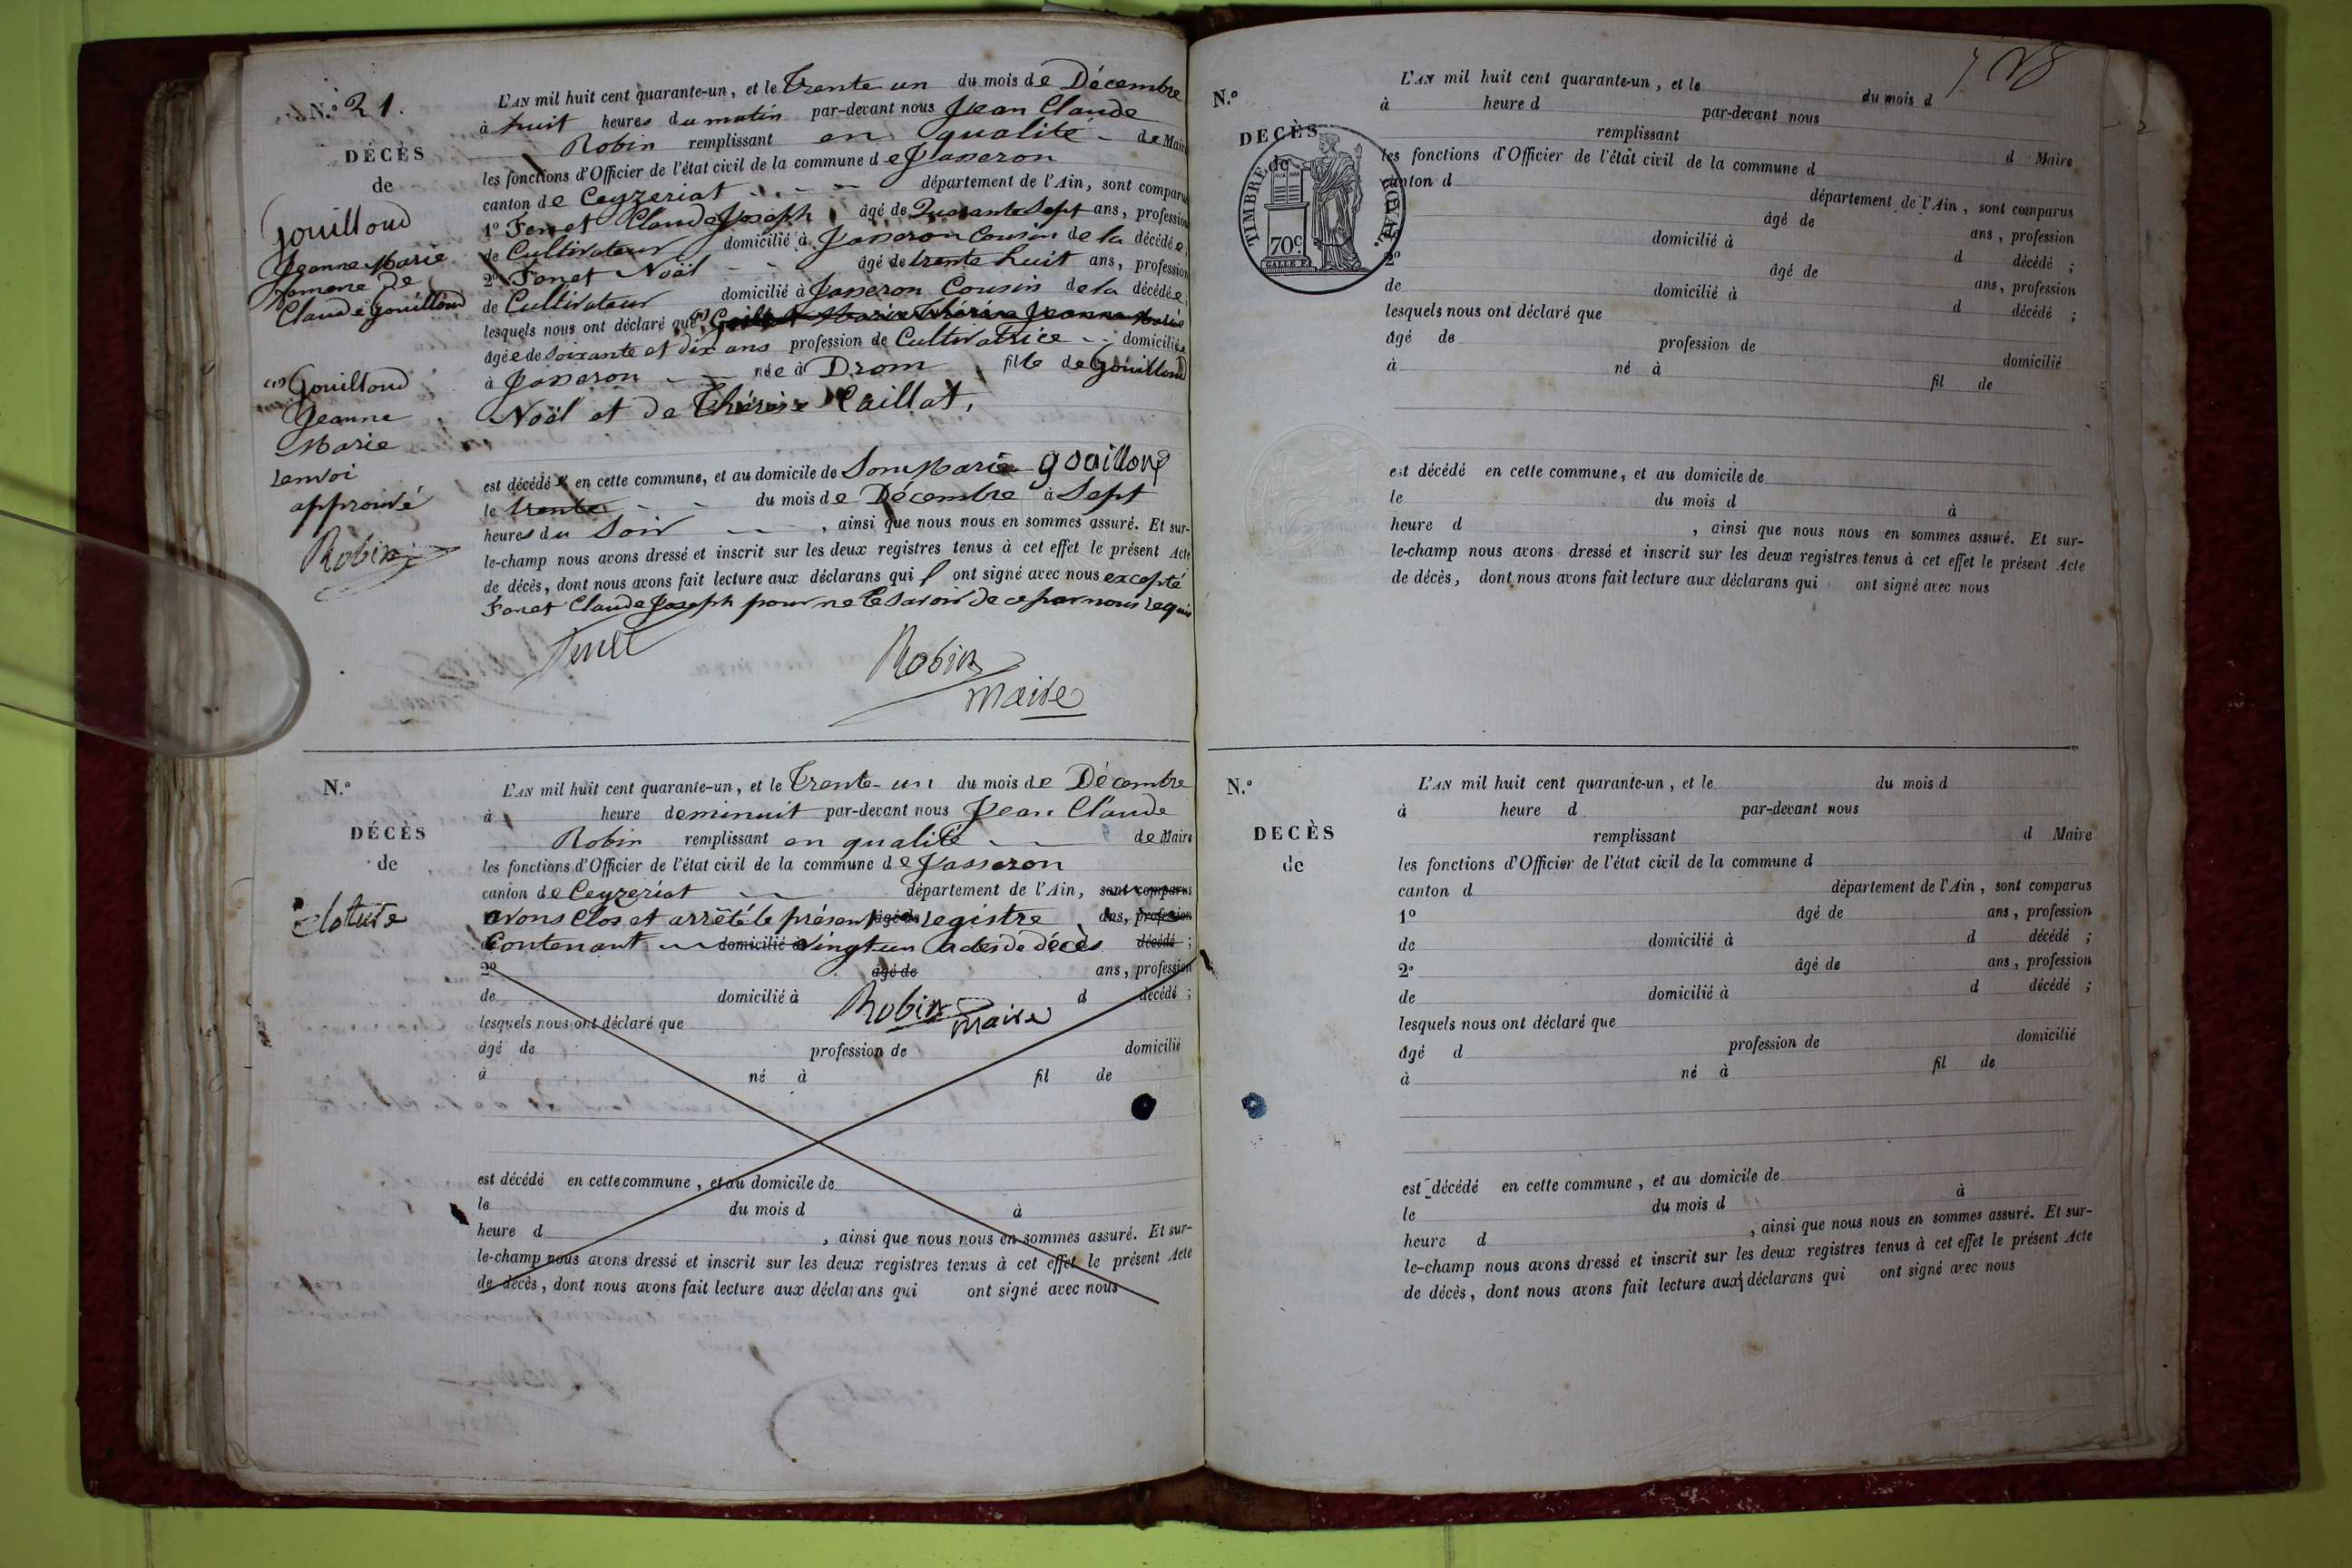 N.o 21.
DÉCÈS
de
Gouilloud
Jeanne Marie
femme de
Claude Gouilloud
(1) Gouilloud
Jeanne
Marie
renvoi
approuvé
Robin
L'AN mil huit cent quarante-un, et le Trente un du mois de Décembre
à huit heures du matin par-devant nous Jean Claude
Robin remplissant en qualité de Maire
les fonctions d'Officier de l'état civil de la commune de Jasseron
canton de Ceyzeriat département de l'Ain, sont comparus
1o Feret Claude Joseph âgé de Quarante Sept ans, profession
de Cultivateur domicilié à Jasseron Cousin de la décédée
2o Feret Noël âgé de trente huit ans, profession
de Cultivateur domicilié à Jasseron Cousin de la décédée
lesquels nous ont déclaré que (1) Marie Thérèse Jeanne Marie
âgée de soixante et dix ans profession de Cultivatrice domiciliée
à Jasseron née à Drom fille de Gouilloud
Noël et de Thérèse Caillat,
est décédé en cette commune, et au domicile de Son Marie gouilloud
le trente du mois de Décembre à Sept
heures du Soir, ainsi que nous nous en sommes assuré. Et sur-
le-champ nous avons dressé et inscrit sur les deux registres tenus à cet effet le présent Acte
de décès, dont nous avons fait lecture aux déclarans qui ont signé avec nous excepté
Feret Claude Joseph pour ne le savoir de ce par nous requis
Robin
maire
N.o
DÉCÈS
de
Cloture
L'AN mil huit cent quarante-un, et le Trente-un du mois de Décembre
à heure de minuit par-devant nous Jean Claude
Robin remplissant en qualité de Maire
les fonctions d'Officier de l'état civil de la commune de Jasseron
canton de Ceyzeriat département de l'Ain, sont comparus
avons Clos et arrêté le présent âgé de registre ans, profession
Contenant domicilié à vingt un actes de décès décédé ;
2o âgé de ans, profession
de domicilié à d décédé ;
Robin
maire
lesquels nous ont déclaré que
âgé de profession de domicilié
à né à fil de
est décédé en cette commune, et au domicile de
le du mois d à
heure d , ainsi que nous nous en sommes assuré. Et sur-
le-champ nous avons dressé et inscrit sur les deux registres tenus à cet effet le présent Acte
de décès, dont nous avons fait lecture aux déclarans qui ont signé avec nous
N.o
DECÈS
de
TIMBRE ROYAL.
70c
L'AN mil huit cent quarante-un, et le du mois d
à heure d par-devant nous
remplissant d Maire
les fonctions d'Officier de l'état civil de la commune d
canton d département de l'Ain, sont comparus
âgé de ans, profession
domicilié à d décédé ;
2o âgé de ans, profession
de domicilié à d décédé ;
lesquels nous ont déclaré que
âgé de profession de domicilié
à né à fil de
est décédé en cette commune, et au domicile de
le du mois d à
heure d , ainsi que nous nous en sommes assuré. Et sur-
le-champ nous avons dressé et inscrit sur les deux registres tenus à cet effet le présent Acte
de décès, dont nous avons fait lecture aux déclarans qui ont signé avec nous
N.o
DECÈS
de
L'AN mil huit cent quarante-un, et le du mois d
à heure d par-devant nous
remplissant d Maire
les fonctions d'Officier de l'état civil de la commune d
canton d département de l'Ain, sont comparus
1o âgé de ans, profession
de domicilié à d décédé ;
2o âgé de ans, profession
de domicilié à d décédé ;
lesquels nous ont déclaré que
âgé d profession de domicilié
à né à fil de
est décédé en cette commune, et au domicile de
le du mois d à
heure d , ainsi que nous nous en sommes assuré. Et sur-
le-champ nous avons dressé et inscrit sur les deux registres tenus à cet effet le présent Acte
de décès, dont nous avons fait lecture aux déclarans qui ont signé avec nous